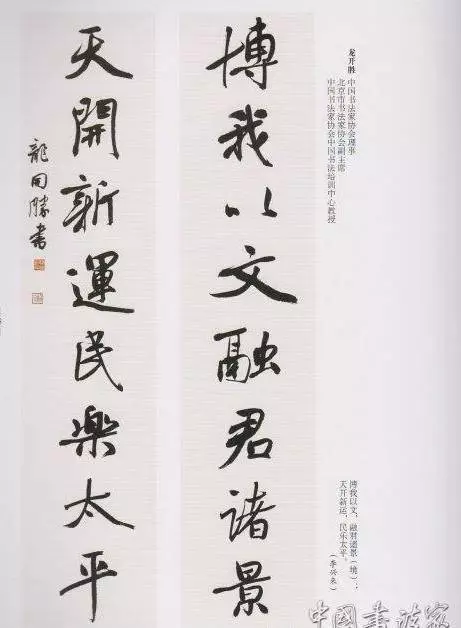 龙开胜 中国书法家协会理事
北京市书法家协会副主席
中国书法家协会中国书法培训中心教授
博我以文融君諸景
天開新運民樂太平
龍開勝書
博我以文，融君诸景（境）；
天开新运，民乐太平。
（李兴来）
中國書法家